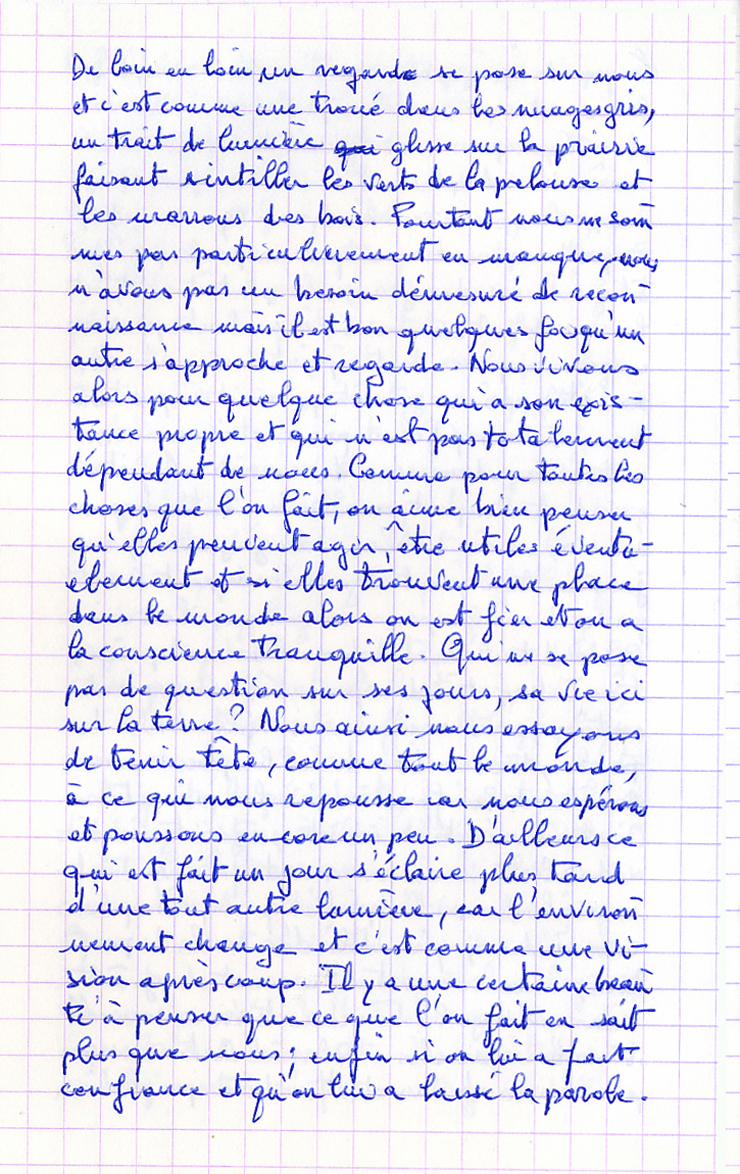 De loin en loin un regard se pose sur nous
et c'est comme une troué dans les nuages gris,
un trait de lumière qui glisse sur la prairie
faisant sintiller les verts de la pelouse et
les marrons des bois. Pourtant nous ne som-
mes pas particulièrement en manque, nous
n'avons pas un besoin démesuré de recon-
naissance mais il est bon quelques fois qu'un
autre s'approche et regarde. Nous vivons
alors pour quelque chose qui a son exis-
tance propre et qui n'est pas totalement
dépendant de nous. Comme pour toutes les
choses que l'on fait, on aime bien penser
qu'elles peuvent agir, être utiles éventu-
ellement et si elles trouvent une place
dans le monde alors on est fier et on a
la conscience tranquille. Qui ne se pose
pas de question sur ses jours, sa vie ici
sur la terre ? Nous ainsi nous essayons
de tenir tête, comme tout le monde,
à ce qui nous repousse car nous espérons
et poussons encore un peu. D'ailleurs ce
qui est fait un jour s'éclaire plus tard
d'une tout autre lumière, car l'environ-
nement change et c'est comme une vi-
sion après coup. Il y a une certaine beau-
té à penser que ce que l'on fait en sait
plus que nous ; enfin si on lui a fait
confiance et qu'on lui a laissé la parole.